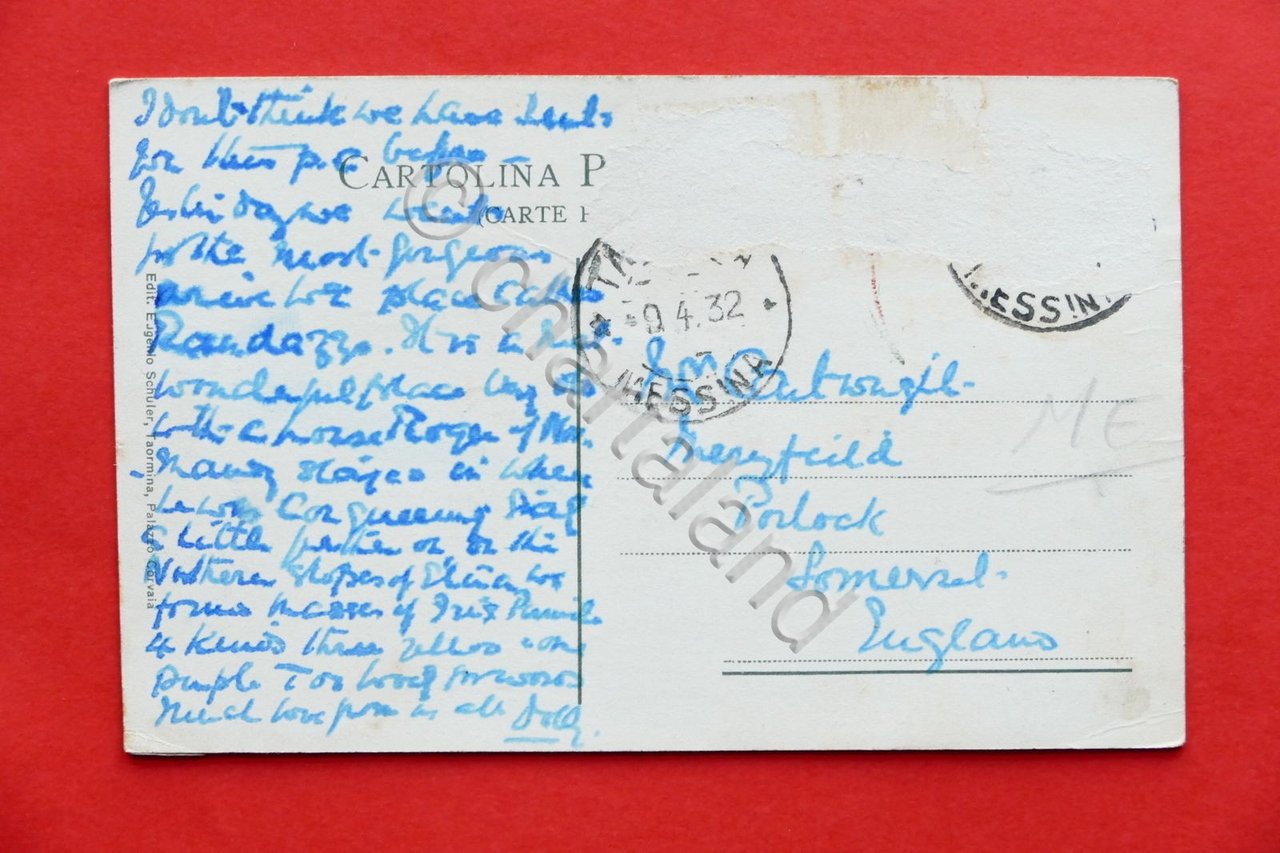 I don't think we have sent
you this p.c. before
Yesterday we went
for the most gorgeous
drive to a place called
Randazzo. It is a most
wonderful place
with a house Roger of Nor-
mandy stayed in when
he was Conquering Sicily
a little further on on the
Northern slopes of Etna we
found masses of Iris Pumila
4 kinds three yellow one
purple Too lovely for words
Much love from us all Dolly.
CARTOLINA P
(CARTE P
Edit. Eugenio Schuler, Taormina, Palazzo Corvaia
TA
9.4.32
MESSINA
MESSINA
Cartwright
Meryfield
Porlock
Somerset
England
ME
© chartaland